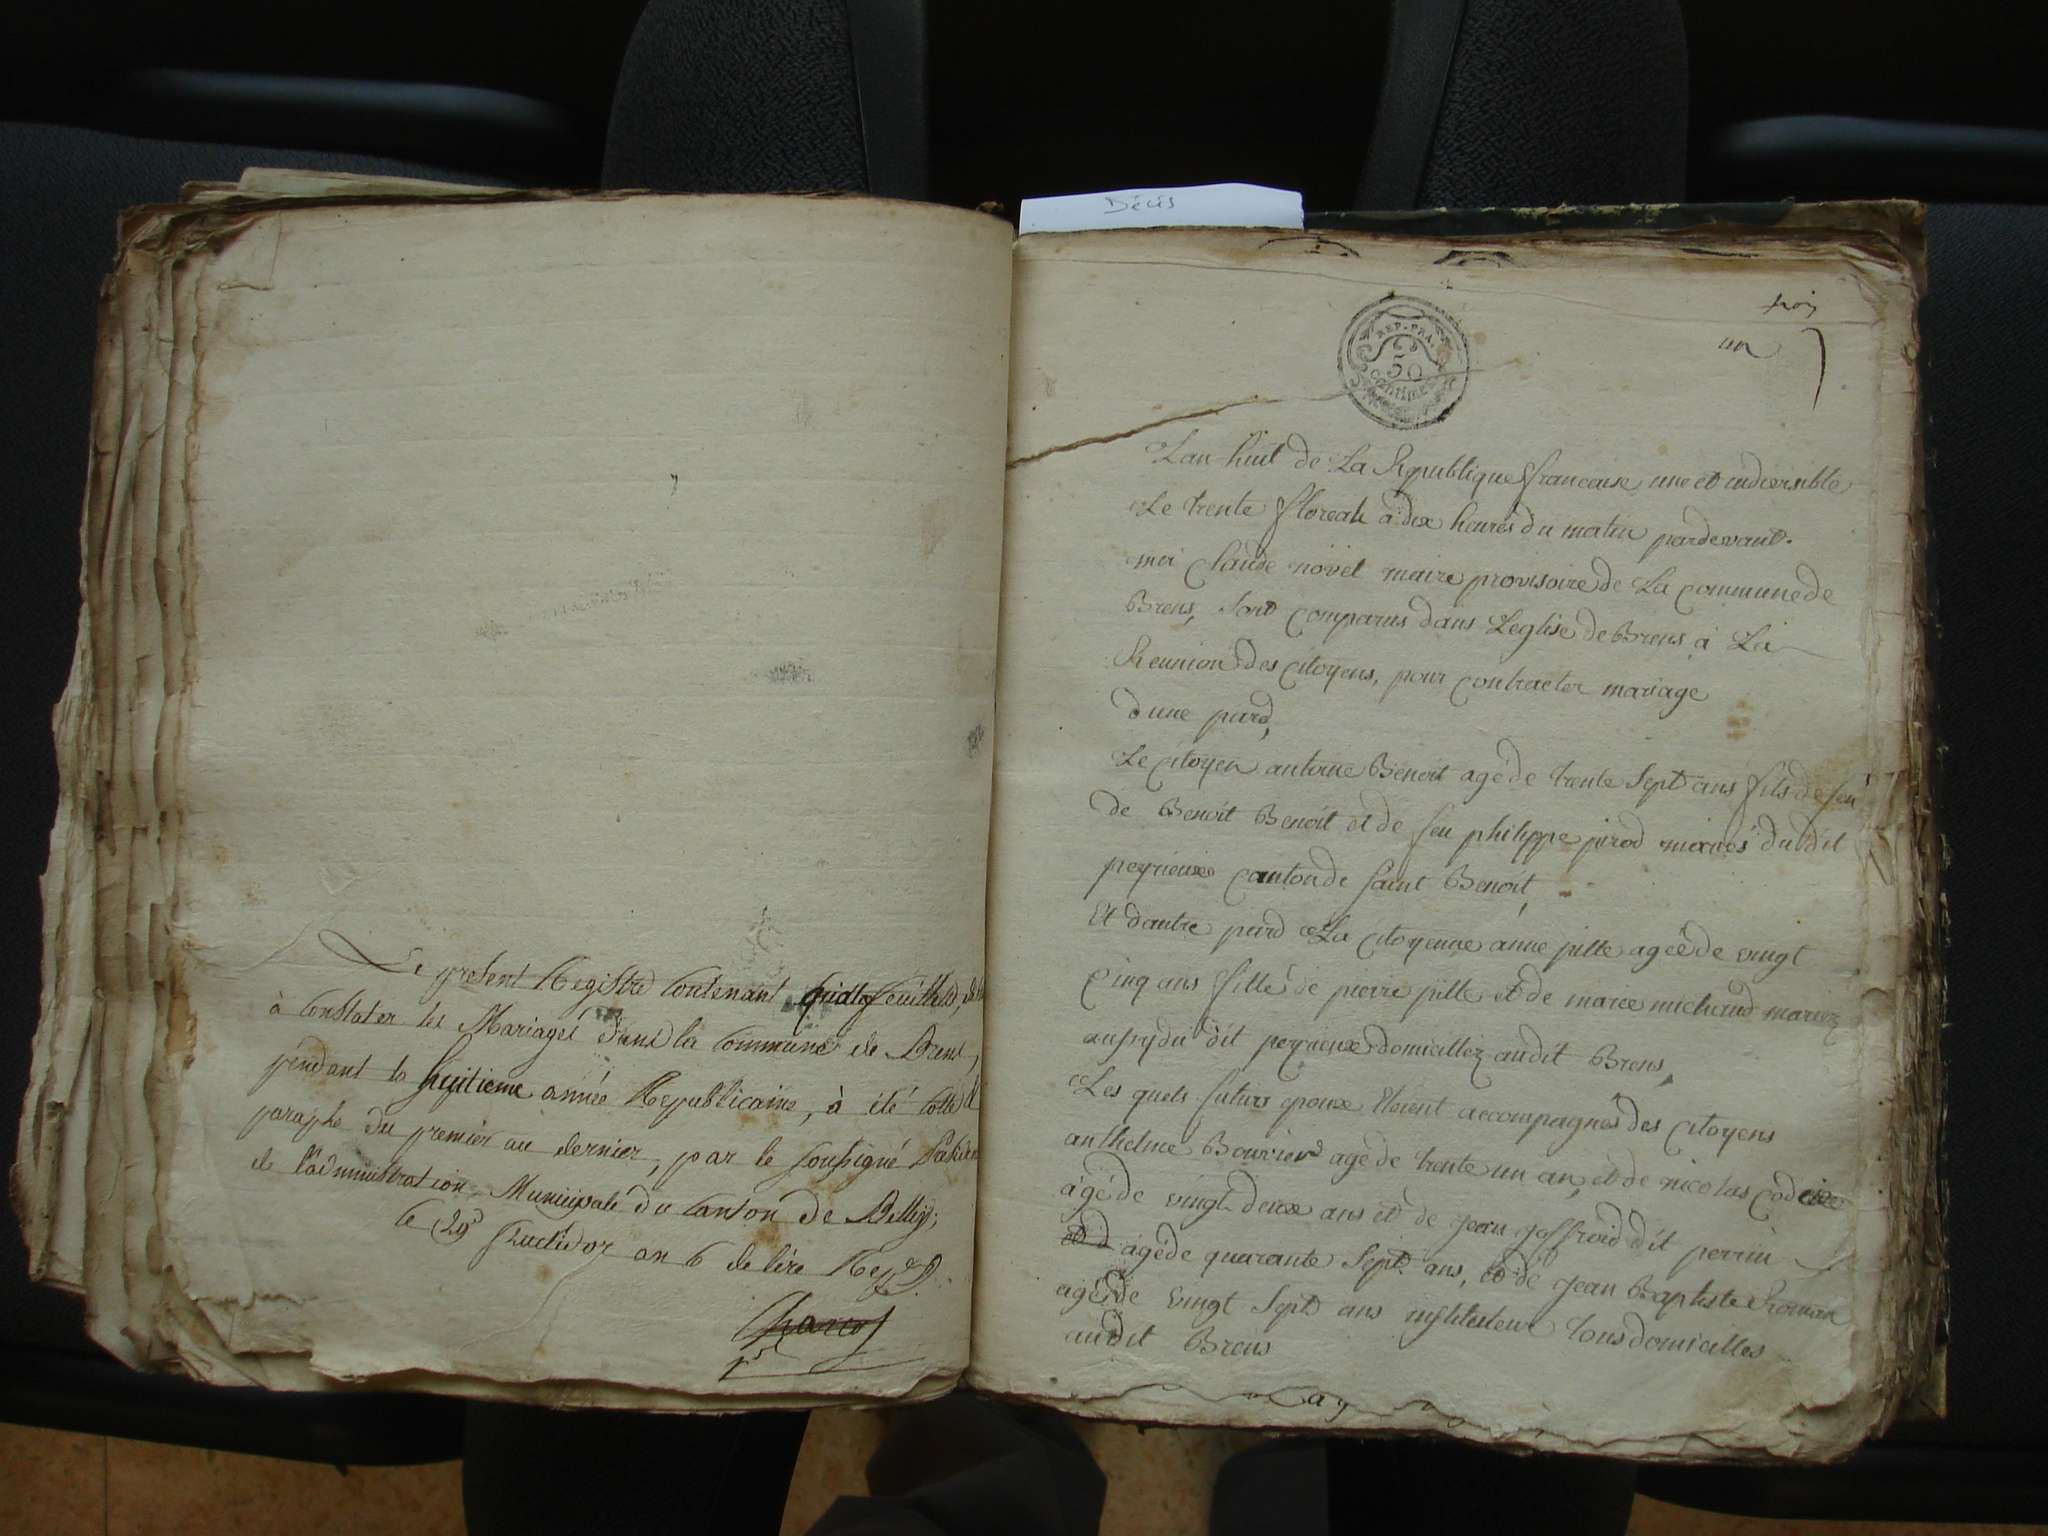 Le present Registre Contenant feuillets,
à Constater les Mariages dans la Commune de Brens,
pendant la huitieme année Republicaine, à été Cotté &
paraphé du premier au dernier, par le soussigné
de l'administration Municipale du Canton de Belley;
le 29 fructidor an 6 de l'ère Rep.
Décès
trois
un
REP. FRA.
50
CENTIMES
Lan huit de La Republique francaise une et indivisible
Le trente floreal à dix heures du matin pardevant
moi Claude novel maire provisoire de La Commune de
Brens, sont comparus dans Leglise de Brens à La
Reunion des Citoyens, pour contracter mariage
dune pard,
Le Citoyen antoine Benoit agé de trente Sept ans fils de feu
de Benoit Benoit et de feu philippe pirod mariés du dit
peyrieux canton de saint Benoit,
Et dautre pard La Citoyenne anne pitte ageé de vingt
Cinq ans fille de pierre pitte et de marie michaud mariez
aussy du dit peyrieux domicillez audit Brens,
Les quels futurs epoux etoient accompagnés des Citoyens
anthelme Bouvier agé de trente un an, et de nicolas
agé de vingt deux ans et de jean joffroid dit perrin
et d agé de quarante Sept ans, et de jean Baptiste Roman
agé de vingt Sept ans instituteur tous domicilles
audit Brens